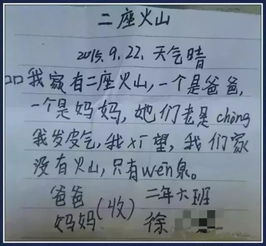 二座火山
2015.9.22.天气晴
我家有二座火山,一个是爸爸,
一个是妈妈,她们老是chōng
我发皮气,我xī望,我们家
没有火山,只有wēn泉。
爸爸
妈妈(收)
二年六班
徐